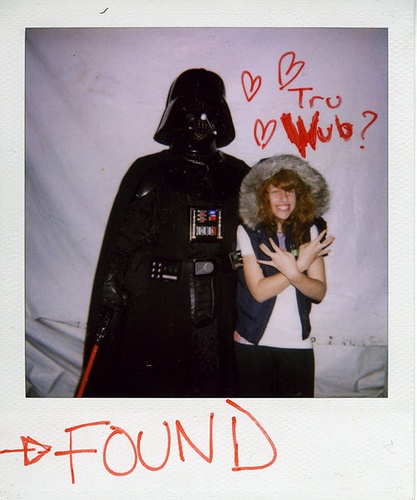 Tru
Wub?
FOUND